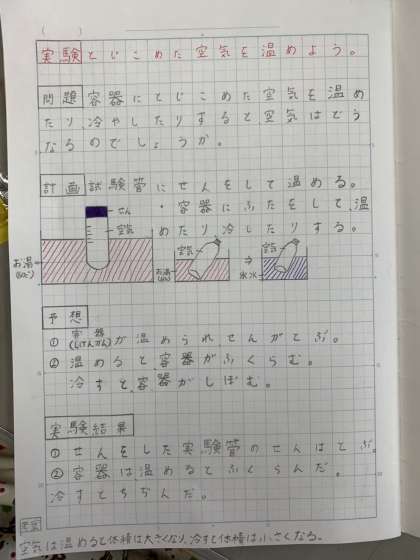 実験とじこめた空気を温めよう。
問題容器にとじこめた空気を温め
たり、冷やしたりすると空気はどう
なるのでしょうか。
計画試験管にせんをして温める。
・容器にふたをして温
めたり冷したりする。
せん
空気
お湯
空気
お湯
⇒
空気
氷水
予想
①容器(しけんかん)が温められせんがとぶ。
②温めると、容器がふくらむ。
冷すと、容器がしぼむ。
実験結果
①せんをした実験管のせんはとぶ。
②容器は、温めるとふくらんだ。
冷すとちぢんだ。
空気は温めると体積は大きくなり、冷すと体積は小さくなる。